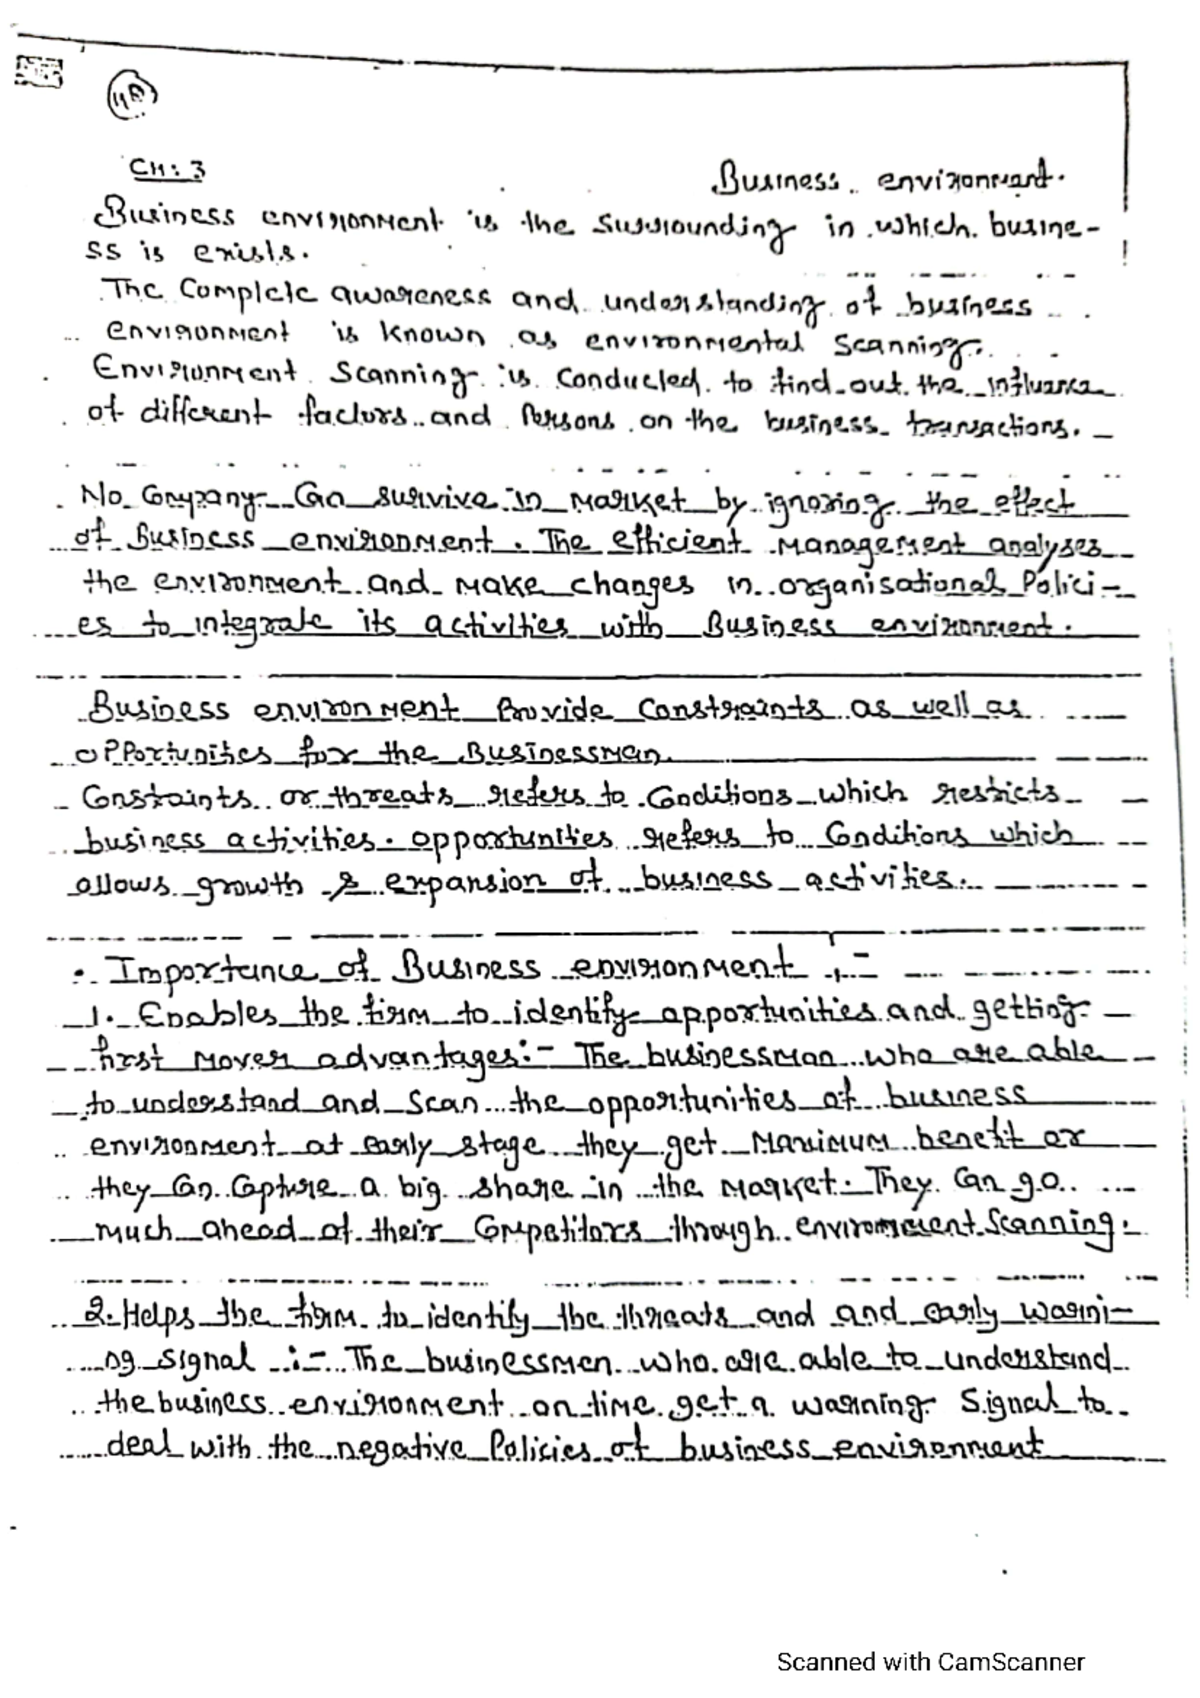 CH: 3
Business environment.
Business environment is the surrounding in which busine-
ss is exists.
The Complete awareness and understanding of business
environment is known as environmental scanning.
Environment Scanning is conducted to find out the influence
of different factors and Persons on the business transactions.
No Company Can survive in Market by ignoring the effect
of Business environment. The efficient Management analyses
the environment and make changes in organisational Polici-
es to integrate its activities with Business environment.
Business environment Provide Constraints as well as
opportunites for the Businessman
Constaints or threats refers to Conditions which restricts
business activities. opportunities refers to Conditions which
allows growth & expansion of business activities.
• Importance of Business environment :-
1. Enables the firm to identify opportunities and getting
first mover advantages:- The businessman who are able
to understand and scan the opportunities of business
environment at early stage they get Maximum benefit or
they Can Capture a big share in the Market. They Can go
much ahead of their Competitors through environment Scanning.
2. Helps the firm to identify the threats and and early warni-
ng signal :- The businessmen who are able to understand
the business environment on time get a warning Signal to
deal with the negative Policies of business environment
Scanned with CamScanner